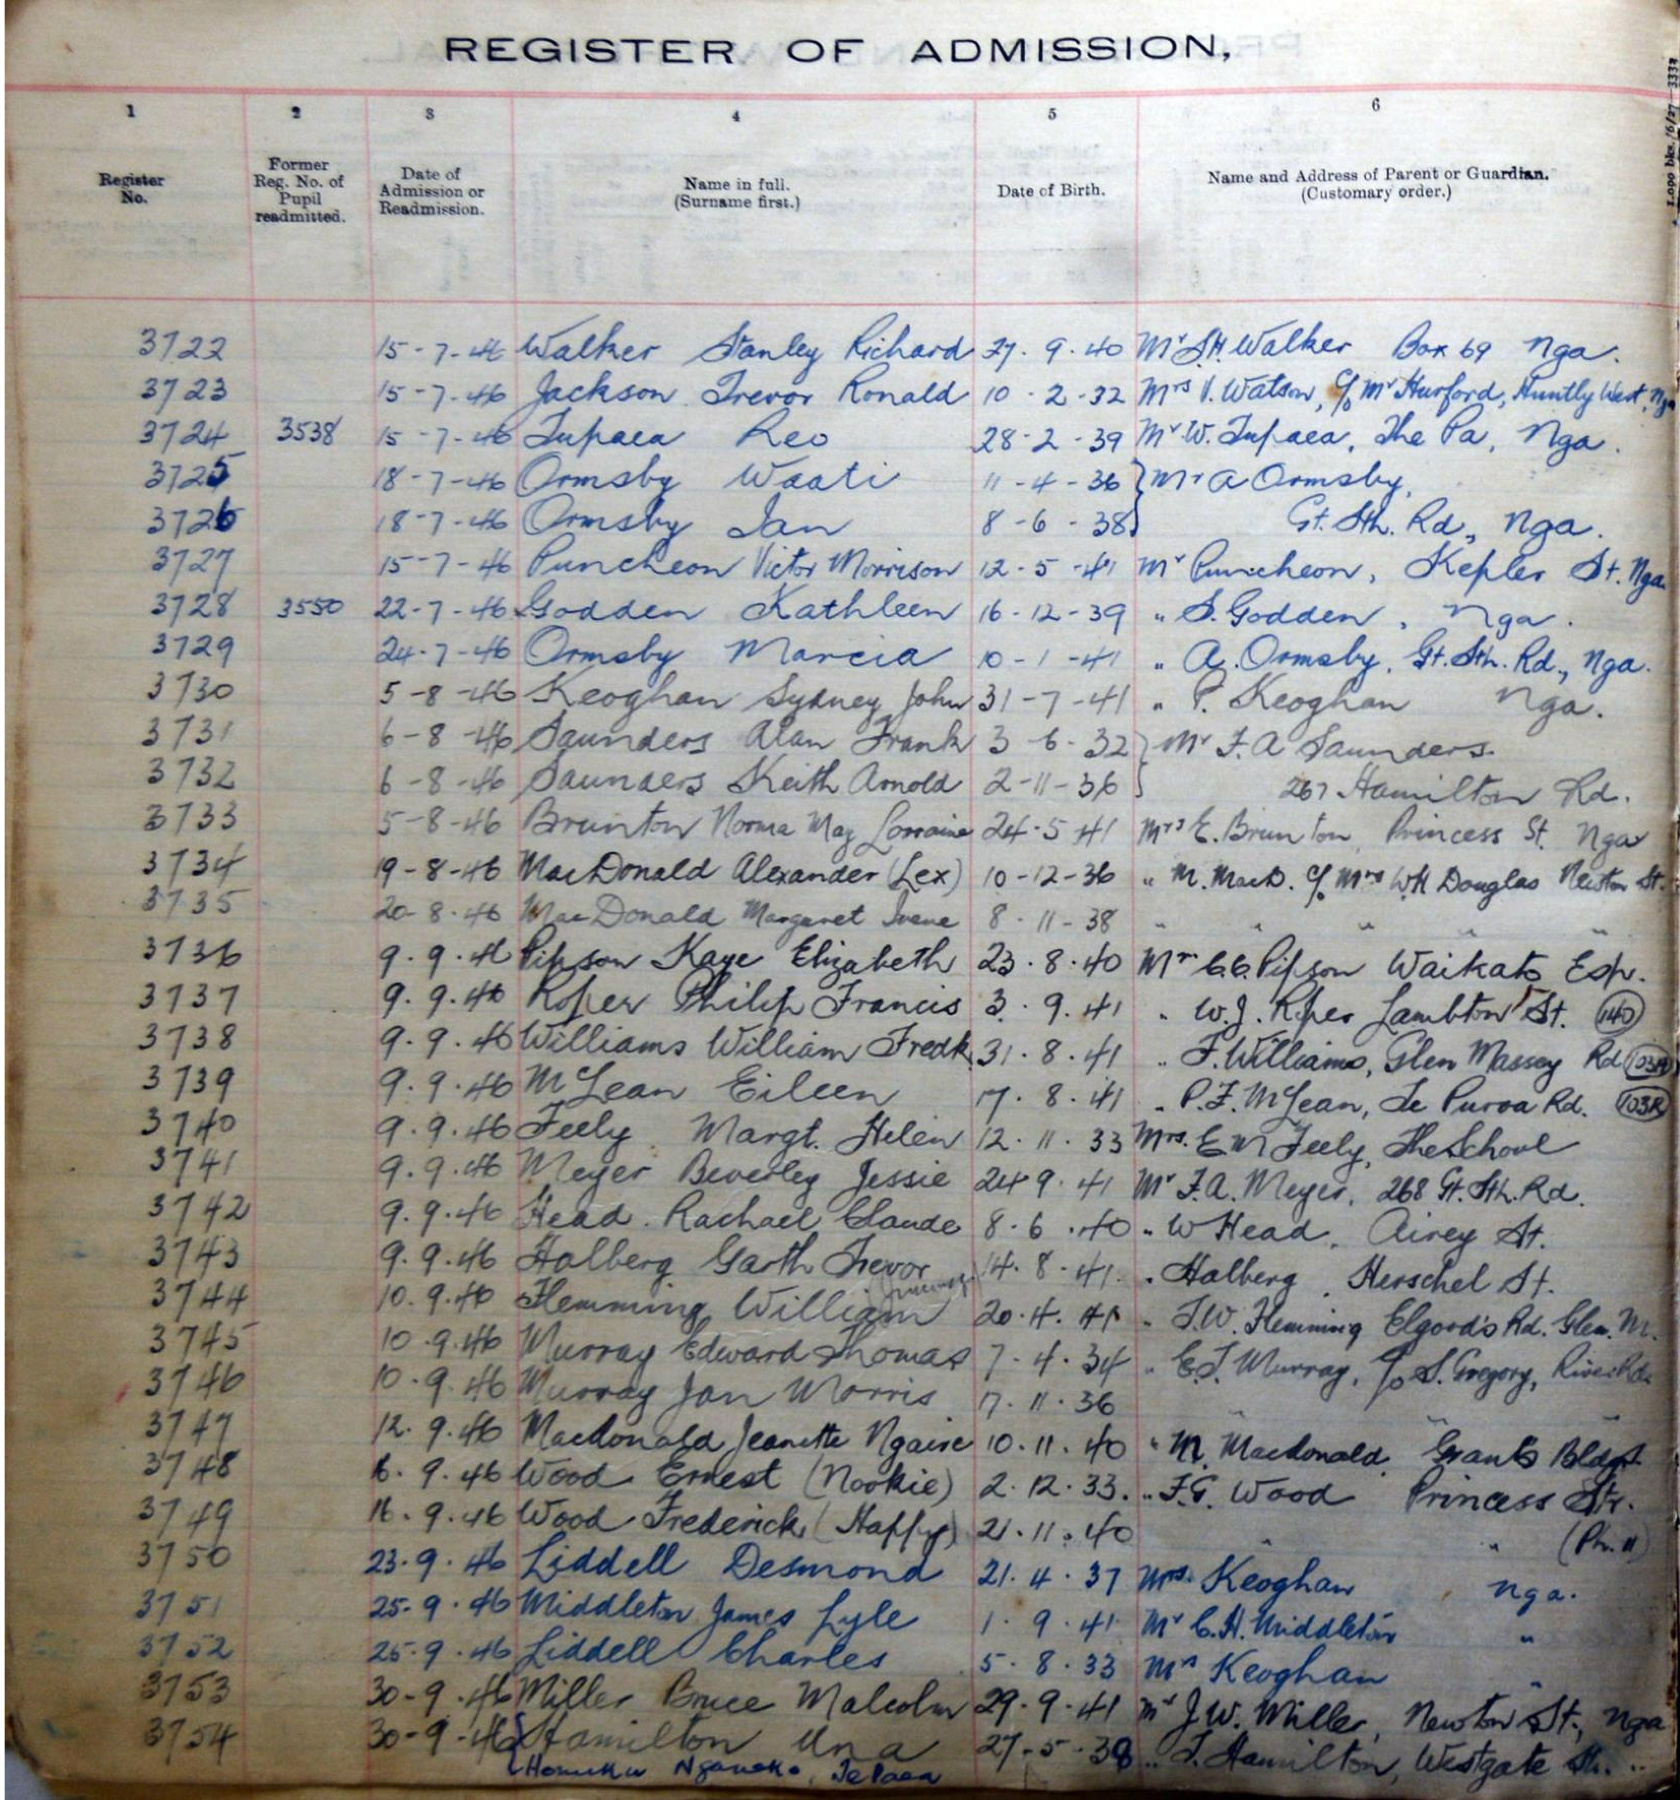 REGISTER OF ADMISSION,
1 2 3 4 5 6
Register No. Former Reg. No. of Pupil readmitted. Date of Admission or Readmission. Name in full. (Surname first.) Date of Birth. Name and Address of Parent or Guardian. (Customary order.)
3722 15-7-46 Walker Stanley Richard 27.9.40 Mr S.H. Walker Box 69 Nga.
3723 15-7-46 Jackson Trevor Ronald 10-2-32 Mrs V. Watson, c/o Mr Hurford, Huntly West, Nga
3724 3538 15-7-46 Tupaea Reo 28-2-39 Mr W. Tupaea, The Pa, Nga.
3725 18-7-46 Ormsby Waati 11-4-36 } Mr A Ormsby,
3726 18-7-46 Ormsby Ian 8-6-38 } Gt. Sth. Rd., Nga.
3727 15-7-46 Puncheon Victor Morrison 12-5-41 Mr Puncheon, Kepler St. Nga
3728 3550 22-7-46 Godden Kathleen 16-12-39 " S. Godden, Nga.
3729 24-7-46 Ormsby Marcia 10-1-41 " A. Ormsby, Gt. Sth. Rd., Nga.
3730 5-8-46 Keoghan Sydney John 31-7-41 " P. Keoghan Nga.
3731 6-8-46 Saunders Alan Frank 3-6-32 } Mr F. A Saunders.
3732 6-8-46 Saunders Keith Arnold 2-11-36 } 267 Hamilton Rd.
3733 5-8-46 Brunton Norma May Lorraine 24-5-41 Mrs E. Brunton, Princess St. Nga
3734 19-8-46 MacDonald Alexander (Lex) 10-12-36 " M. MacD. c/o Mrs W.H Douglas Newton St.
3735 20-8-46 MacDonald Margaret Irene 8-11-38 " " " " "
3736 9.9.46 Pipson Kaye Elizabeth 23.8.40 Mr C.C. Pipson Waikato Esp.
3737 9.9.46 Roper Philip Francis 3.9.41 " W.J. Roper Lambton St. (140)
3738 9.9.46 Williams William Fredk. 31.8.41 " F. Williams, Glen Massey Rd (103M)
3739 9.9.46 McLean Eileen 17.8.41 " P.F. McLean, Te Puroa Rd. (103R)
3740 9.9.46 Feely Margt. Helen 12.11.33 Mrs. E M Feely, The School
3741 9.9.46 Meyer Beverley Jessie 24 9.41 Mr F.A. Meyer, 268 Gt. Sth. Rd.
3742 9.9.46 Head. Rachael Claude 8.6.40 " W Head, Airey St.
3743 9.9.46 Halberg Garth Trevor 14.8.41 " Halberg, Herschel St.
3744 10.9.46 Flemming William 20.4.41 " T.W. Flemming Elgood's Rd. Glen. M.
3745 10.9.46 Murray Edward Thomas 7.4.34 " E.T. Murray, c/o S. Gregory, River Rd.
3746 10.9.46 Murray Jan Morris 17.11.36
3747 12.9.46 Macdonald Jeanette Ngaire 10.11.40 " M. Macdonald. Grants Bldgs.
3748 16.9.46 Wood Ernest (Nookie) 2.12.33. " F.G. Wood Princess Str.
3749 16.9.46 Wood Frederick (Happy) 21.11.40 " " (Ph. 11)
3750 23.9.46 Liddell Desmond 21.4.37 Mrs. Keoghan Nga.
3751 25-9.46 Middleton James Lyle 1.9.41 Mr C.H. Middleton "
3752 25-9.46 Liddell Charles 5.8.33 Mrs Keoghan "
3753 30-9.46 Miller Bruce Malcolm 29.9.41 Mr J.W. Miller, Newton St., Nga
3754 30-9-46 Hamilton Una 27-5-38 " T. Hamilton, Westgate St. "